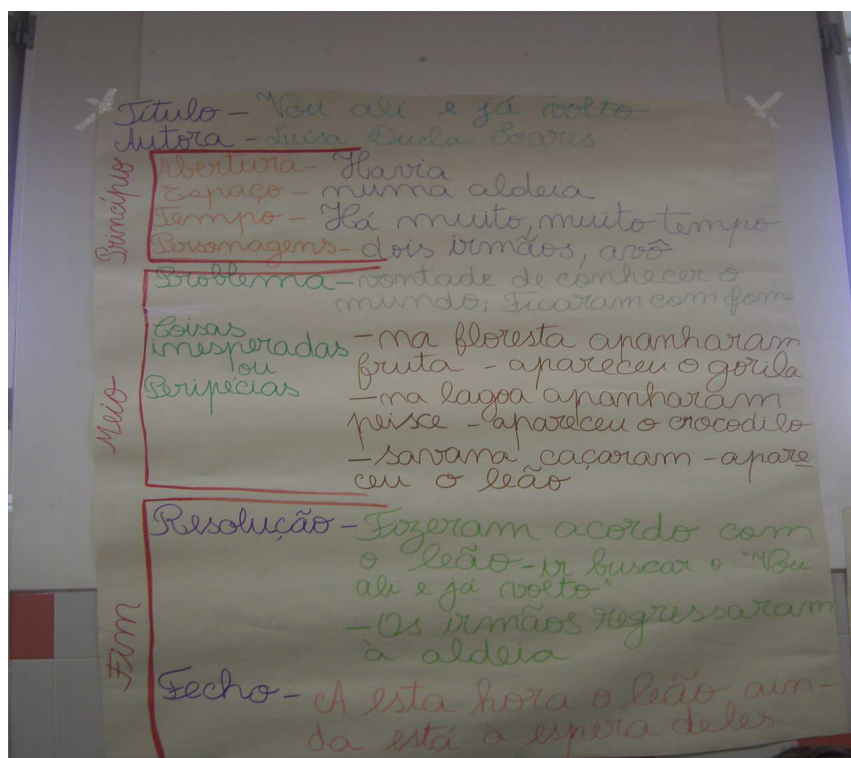 Título - Vou ali e já volto
Autora - Luísa Ducla Soares
Princípio
Abertura - Havia
Espaço - numa aldeia
Tempo - Há muito, muito tempo
Personagens - dois irmãos, avô
Meio
Problema - vontade de conhecer o
mundo; Ficaram com fome
Coisas
inesperadas
ou
Peripécias
- na floresta apanharam
fruta - apareceu o gorila
- na lagoa apanharam
peisce - apareceu o crocodilo
- savana caçaram - apare
ceu o leão
Fim
Resolução - Fizeram acordo com
o leão - ir buscar o "Vou
ali e já volto"
- Os irmãos regressaram
à aldeia
Fecho - A esta hora o leão ain-
da está à espera deles